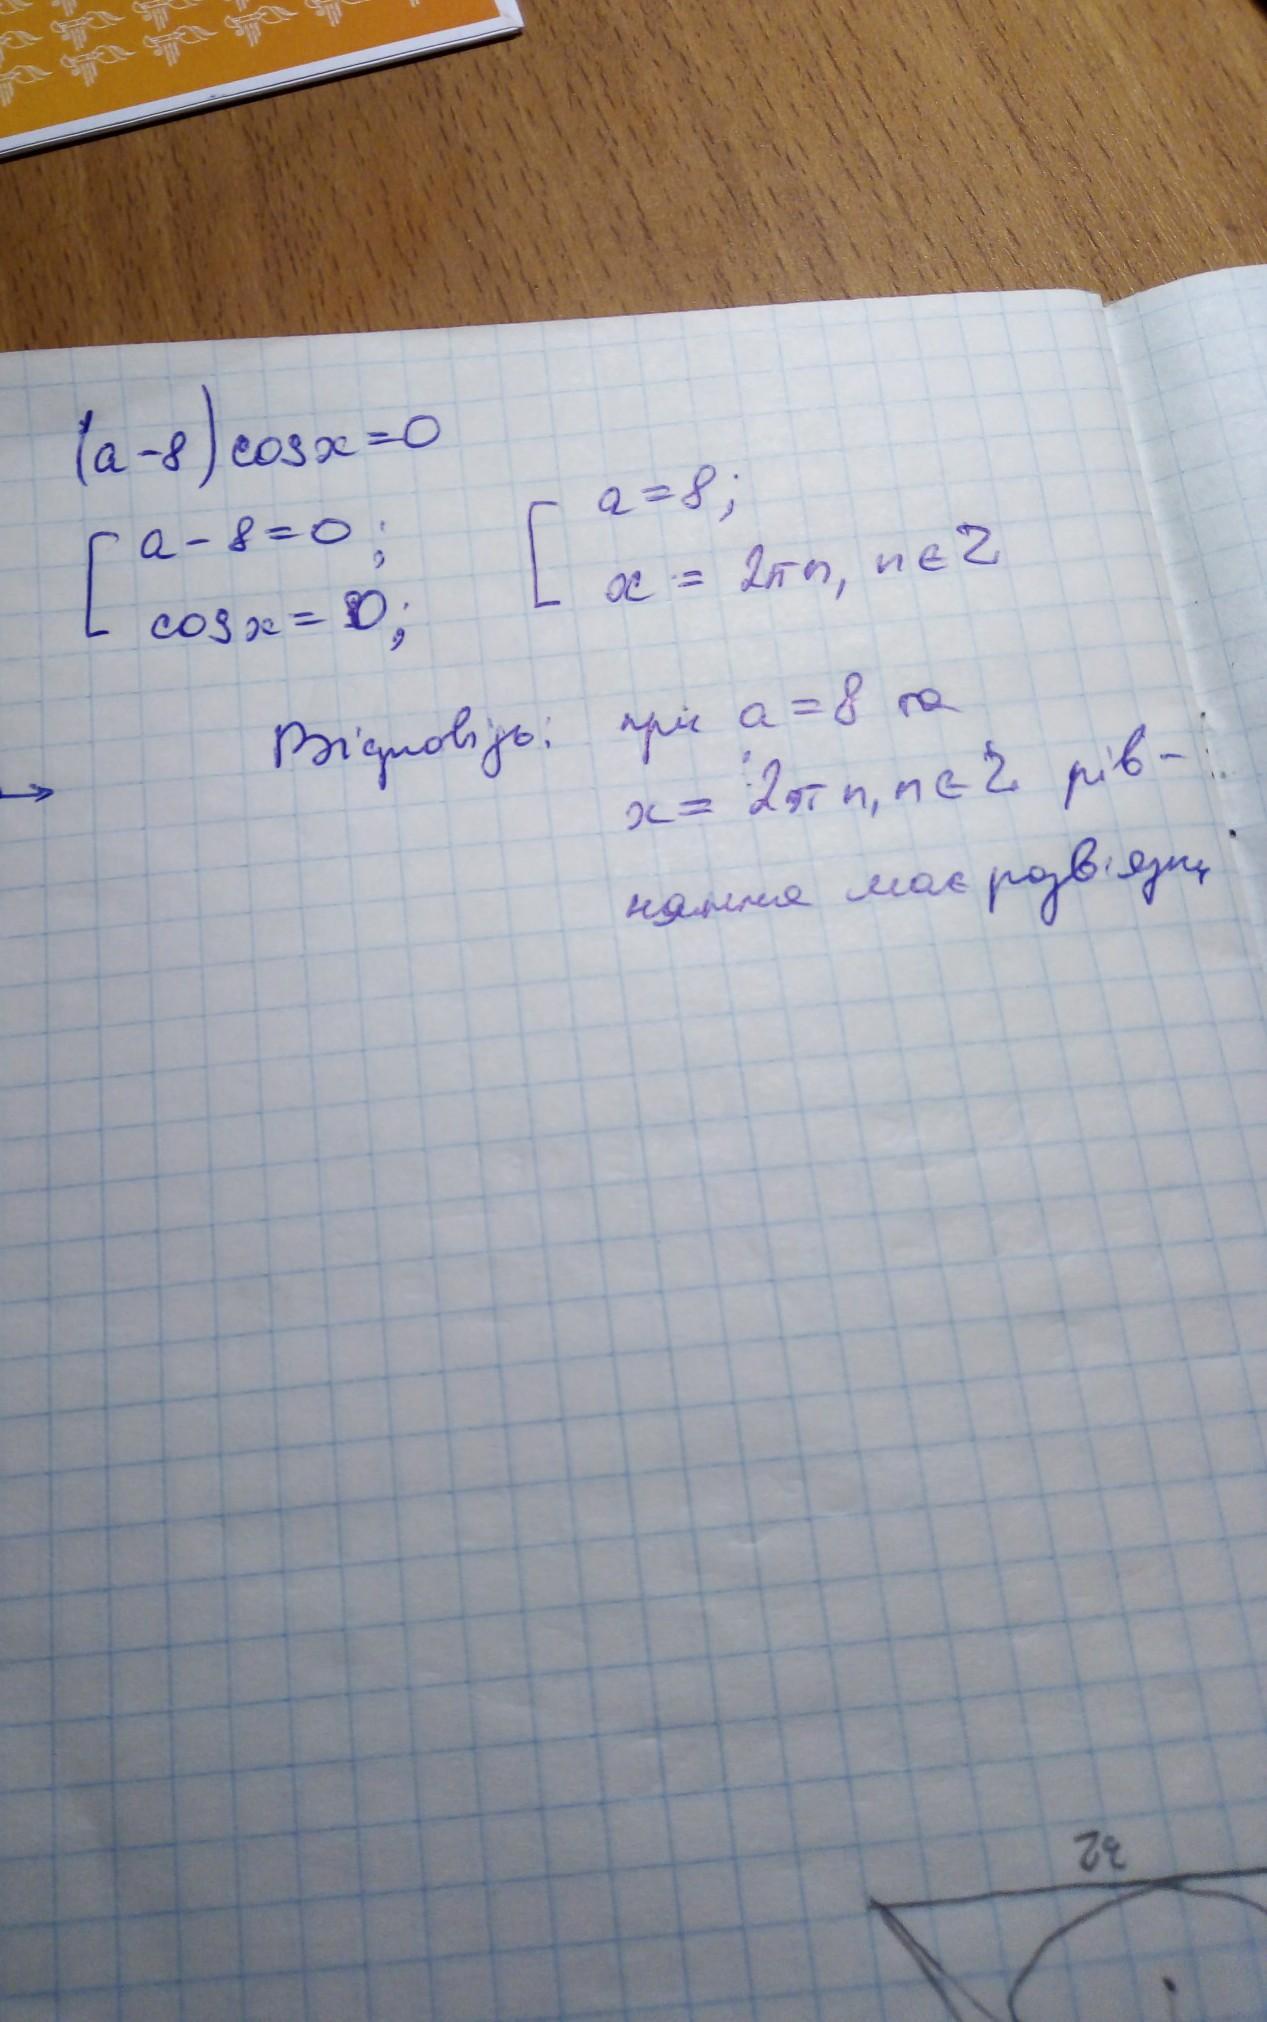 (a-8) cos x = 0
a - 8 = 0;
cos x = 0;
a = 8;
x = 2πn, n ∈ Z
Відповідь: при a = 8 та
x = 2πn, n ∈ Z рів-
няння має розв'язки
32